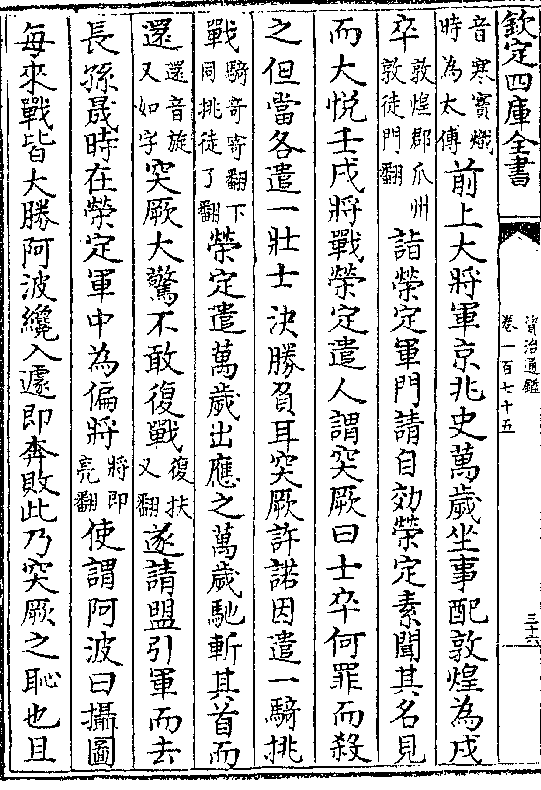 欽定四庫全書
資治通鑑
卷一百七十五
三十六
音寒竇熾時為太傅前上大將軍京兆史萬歲坐事配敦煌為戍
卒敦煌郡瓜州敦徒門翻詣榮定軍門請自効榮定素聞其名見
而大悅壬戌將戰榮定遣人謂突厥曰士卒何罪而殺
之但當各遣一壯士決勝負耳突厥許諾因遣一騎挑
戰騎奇寄翻下同挑徒了翻榮定遣萬歲出應之萬歲馳斬其首而
還還音旋又如字突厥大驚不敢復戰復扶又翻遂請盟引軍而去
長孫晟時在榮定軍中為偏將將即亮翻使謂阿波曰攝圖
每來戰皆大勝阿波纔入遽即奔敗此乃突厥之恥也且